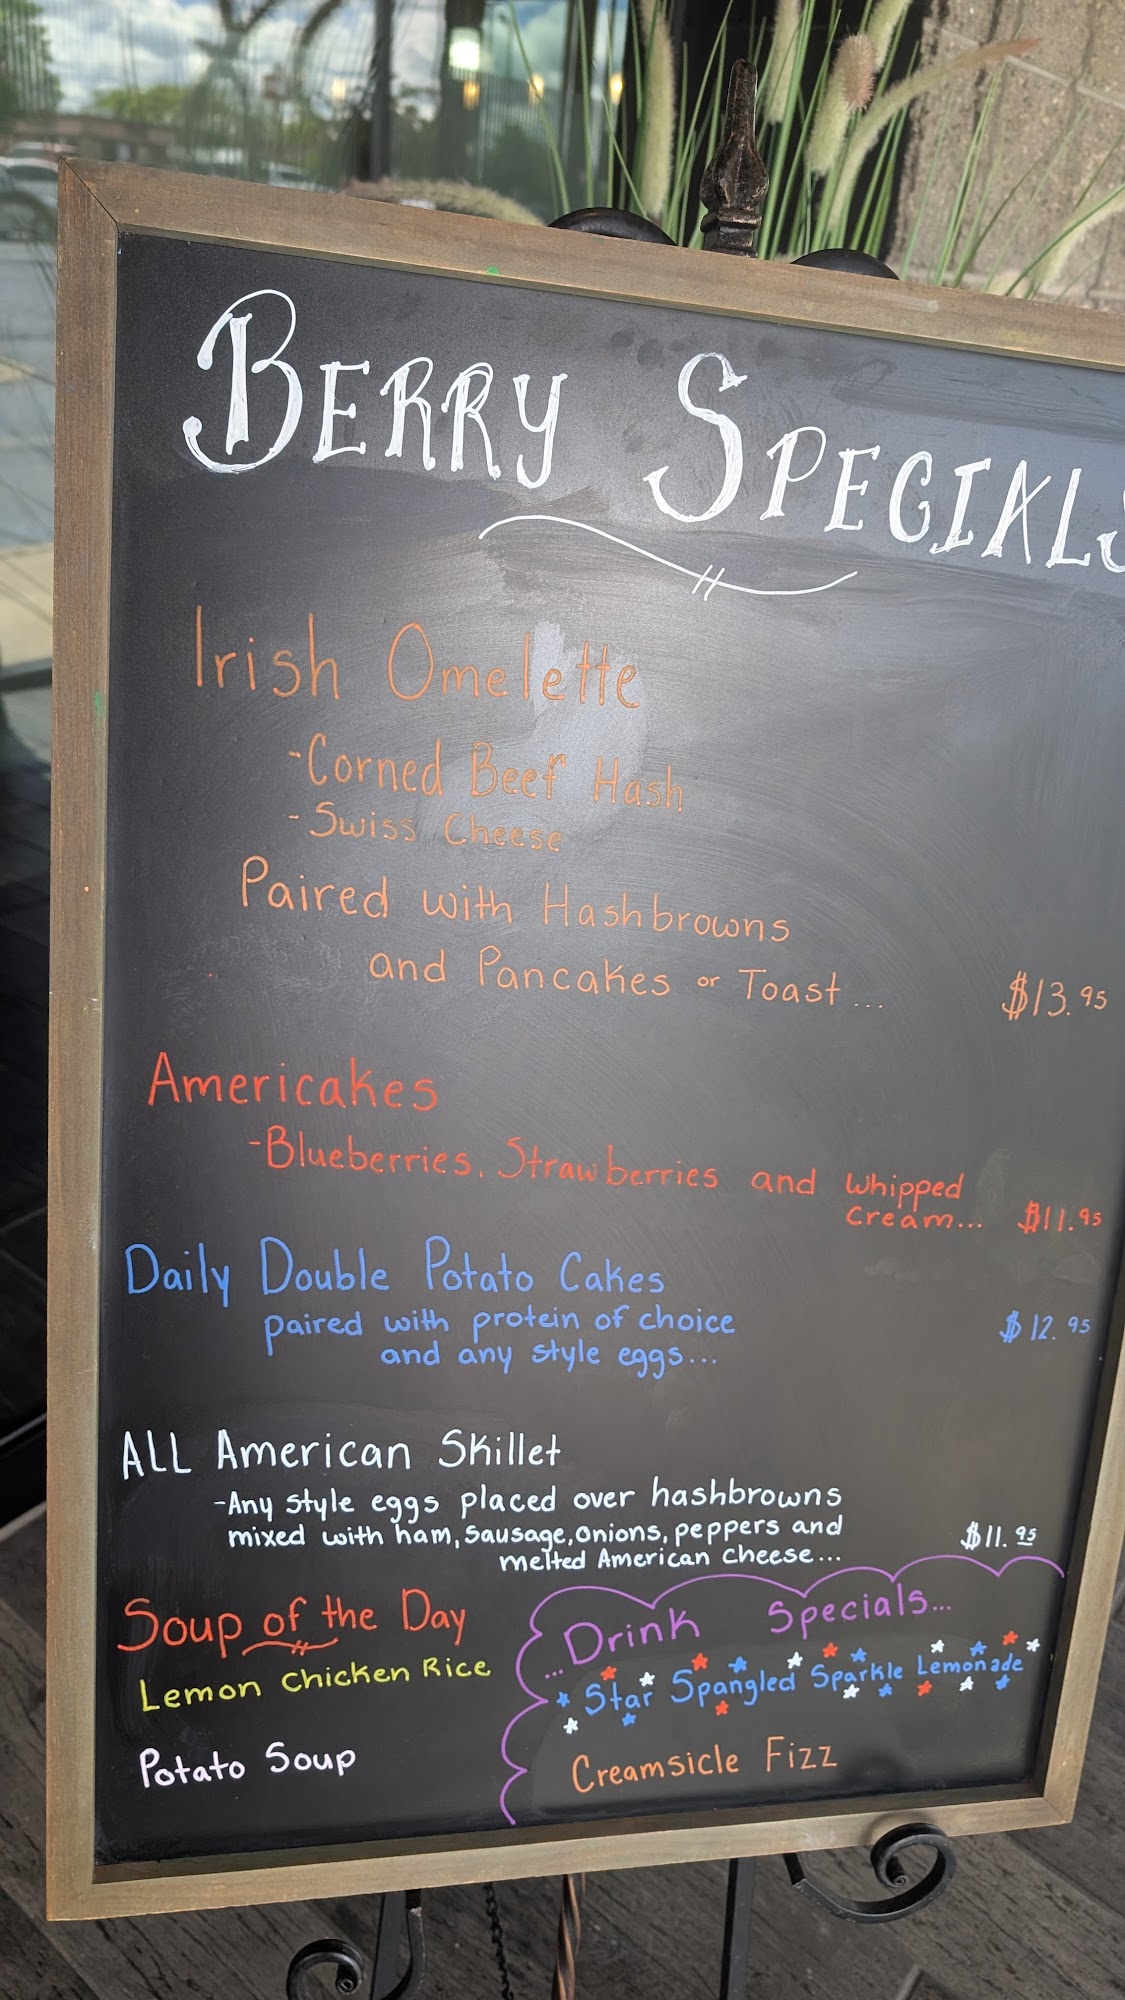 BERRY SPECIALS
Irish Omelette
-Corned Beef Hash
-Swiss Cheese
Paired with Hashbrowns
and Pancakes or Toast... $13.95
Americakes
-Blueberries, Strawberries and whipped
cream... $11.95
Daily Double Potato Cakes
paired with protein of choice $12.95
and any style eggs...
ALL American Skillet
-Any style eggs placed over hashbrowns
mixed with ham, sausage, onions, peppers and $11.95
melted American cheese...
Soup of the Day
Lemon Chicken Rice
Potato Soup
...Drink Specials...
Star Spangled Sparkle Lemonade
Creamsicle Fizz